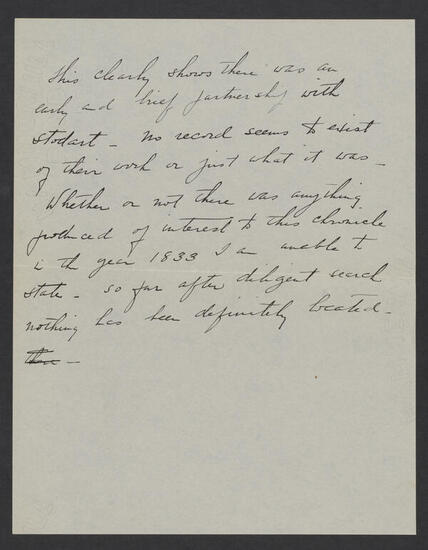 This clearly shows there was an
early and brief partnership with
Stodart - No record seems to exist
of their work or just what it was -
Whether or not there was anything
produced of interest to this chronicle
in the year 1833 I am unable to
state - So far after diligent search
nothing has been definitely located -
then -